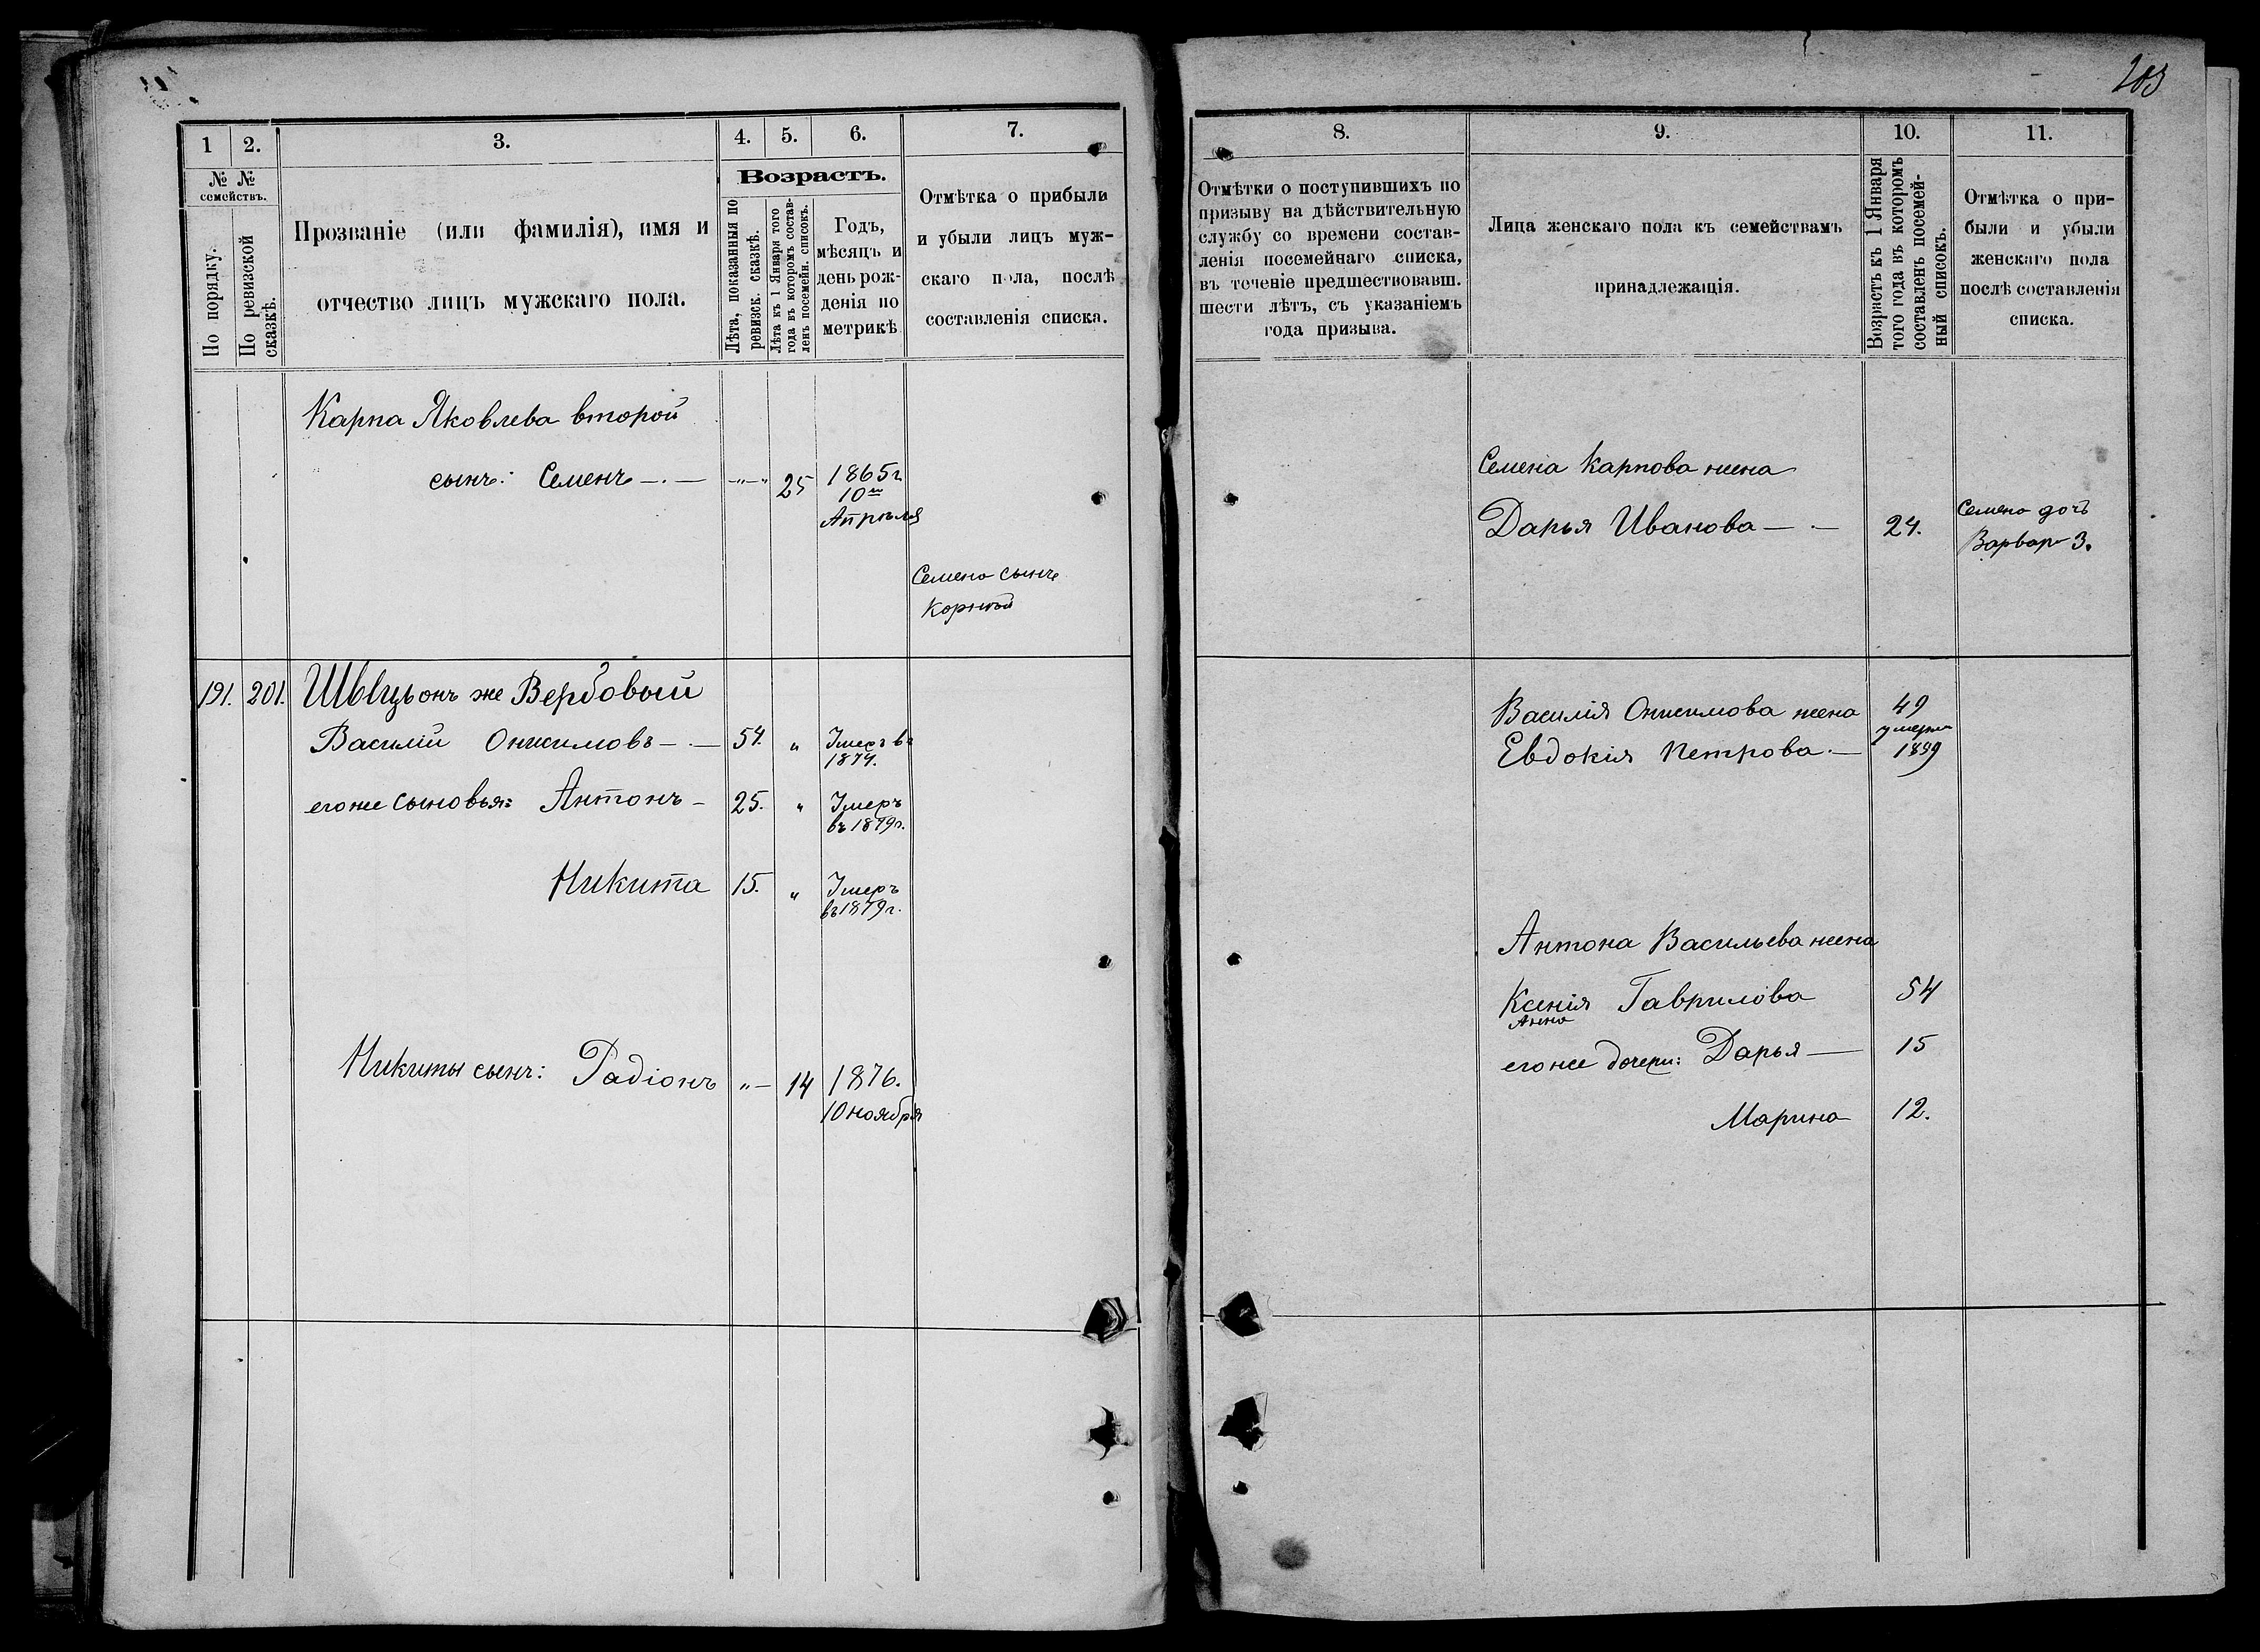 203
1
2.
3.
4.
5.
6.
7.
№ №
семействъ.
По порядку.
По ревизской
сказкѣ.
Прозваніе (или фамилія), имя и
отчество лицъ мужскаго пола.
Возрастъ.
Лѣта, показанныя по
ревизск. сказкѣ.
Лѣта къ 1 Января того
года въ которомъ состав-
ленъ посемейн. списокъ.
Годъ,
мѣсяцъ и
день рож-
денія по
метрикѣ
Отмѣтка о прибыли
и убыли лицъ муж-
скаго пола, послѣ
составленія списка.
Карпа Яковлева второй
сынъ: Семенъ 25 1865г.
10го
Апрѣля
Семена сынъ
Корнѣй
191. 201. Швецъ онъ же Вербовый
Василій Онисимовъ 54. " Умеръ въ
1874.
егоже сыновья: Антонъ 25. " Умеръ
въ 1879г.
Никита 15. " Умеръ
въ 1879г.
Никиты сынъ: Радіонъ " 14 1876.
10 ноября
8.
9.
10.
11.
Отмѣтки о поступившихъ по
призыву на дѣйствительную
службу со времени состав-
ленія посемейнаго списка,
въ теченіе предшествовавш.
шести лѣтъ, съ указаніемъ
года призыва.
Лица женскаго пола къ семействамъ
принадлежащія.
Возрастъ къ 1 Января
того года въ которомъ
составленъ посемей-
ный списокъ.
Отмѣтка о при-
были и убыли
женскаго пола
послѣ составленія
списка.
Семена Карпова жена
Дарья Иванова 24.
Семена дочь
Варвара 3.
Василія Онисимова жена 49
умерла
Евдокія Петрова 1899
Антона Васильева жена
Ксенія Гаврилова 54
Анна
егоже дочери: Дарья 15
Марина 12.